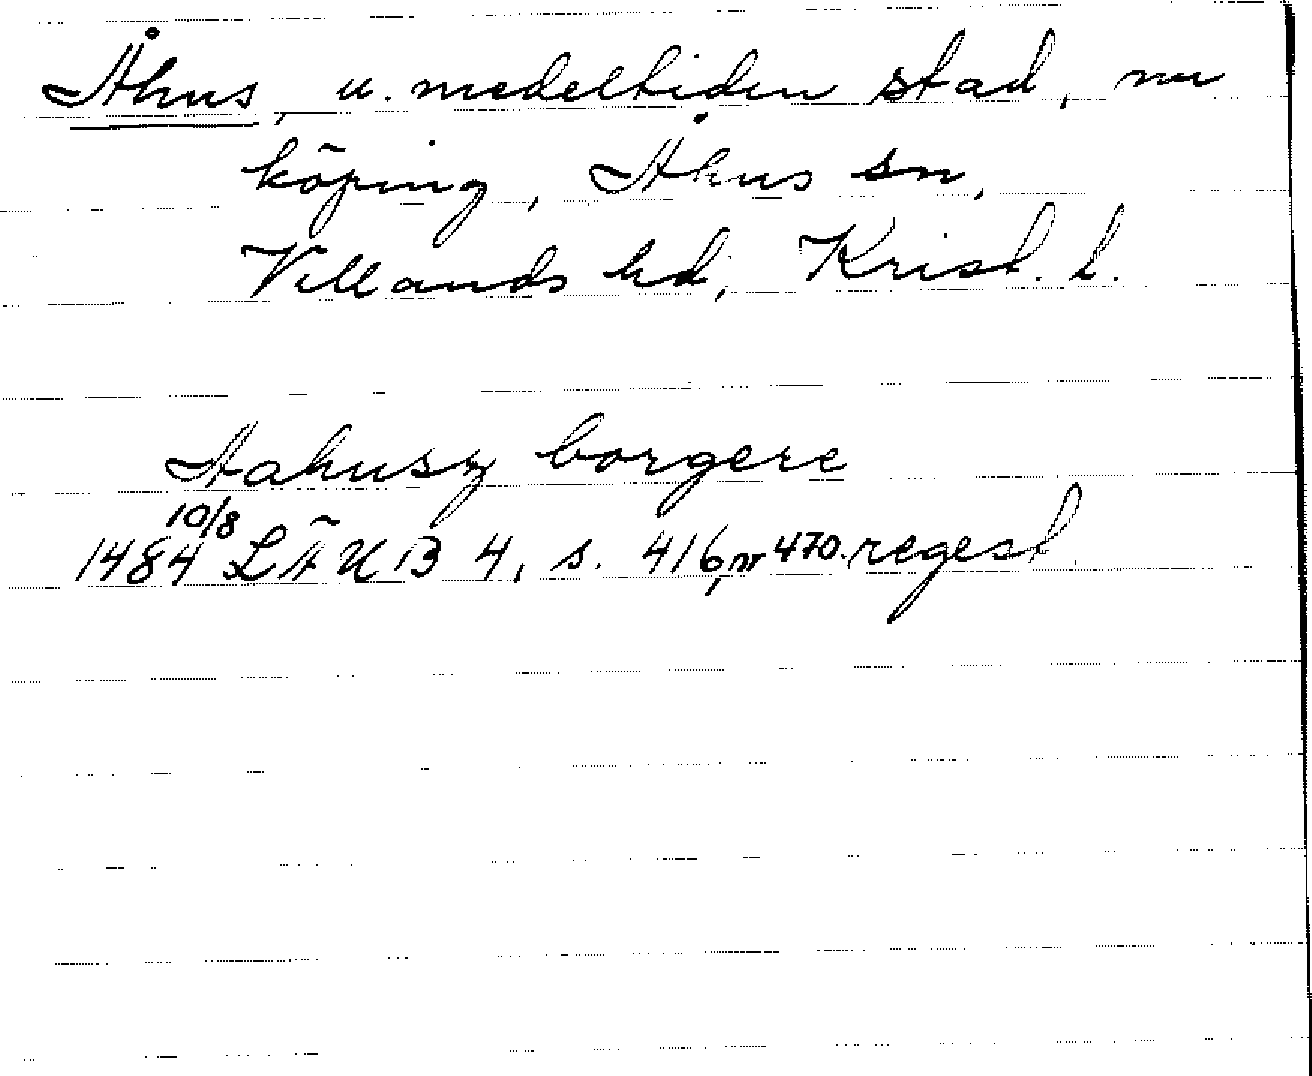 Åhus, u. medeltiden stad, nu
köping, Åhus sn,
Villands hd, Krist. l.
Aahusz borgere
10/8
1484 LÄUB 4, s. 416, nr 470. regest